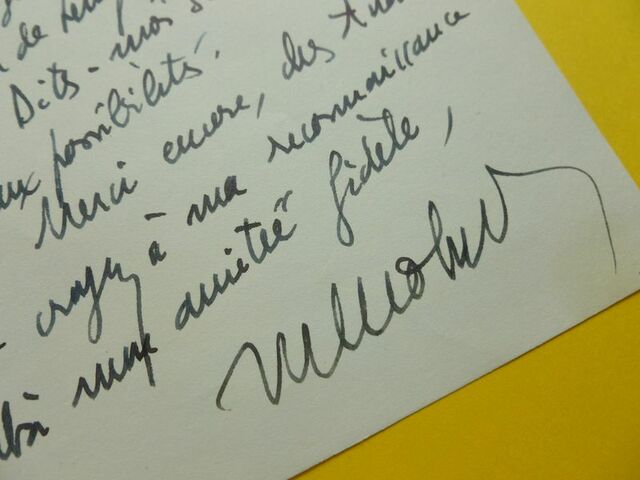 de
Dites-moi s
ux possibilités.
Merci encore, des
croyez à ma reconnaissance
mon amitié fidèle,